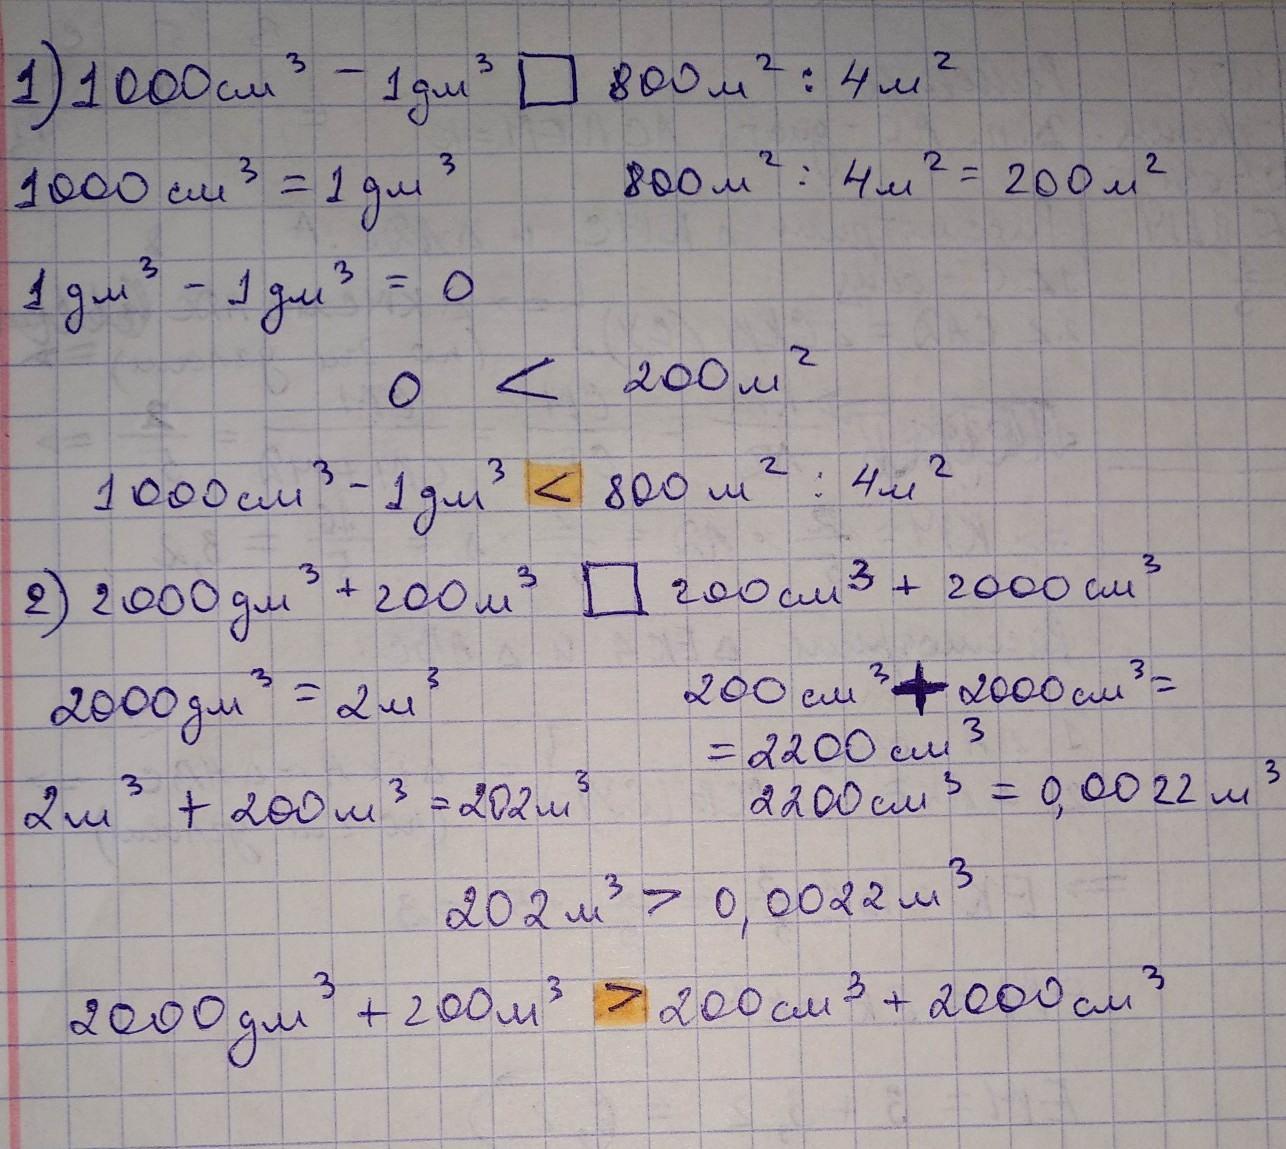 1) 1000см³ - 1дм³ □ 800м² : 4м²
1000 см³ = 1дм³ 800м² : 4м² = 200м²
1дм³ - 1дм³ = 0
0 < 200м²
1000см³ - 1дм³ < 800м² : 4м²
2) 2000дм³ + 200м³ □ 200см³ + 2000см³
2000дм³ = 2м³ 200см³ + 2000см³ =
= 2200см³
2м³ + 200м³ = 202м³ 2200см³ = 0,0022м³
202м³ > 0,0022м³
2000дм³ + 200м³ > 200см³ + 2000см³